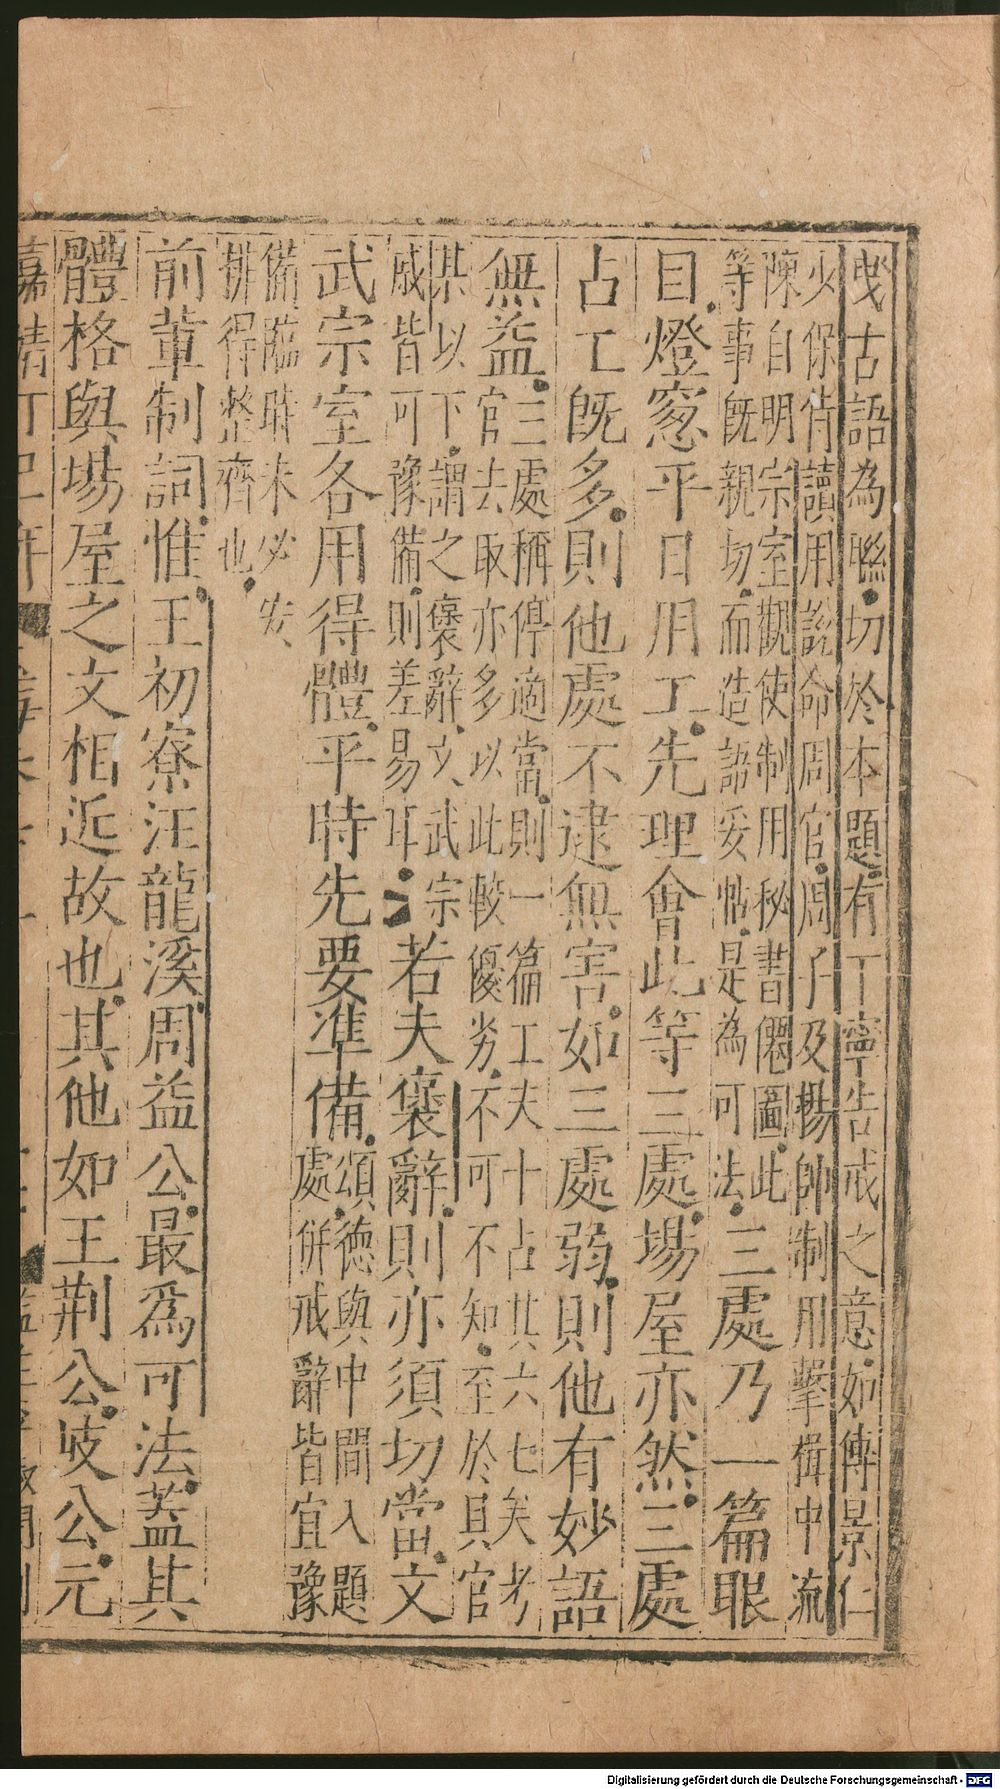 曳古語為聯切於本題有丁寧告戒之意如傅景仁
少保侍讀用說命周官周子及楊帥制用擊楫中流
陳自明宗室觀使制用秘書僊圖此
等事既親切而造語妥帖是為可法三處乃一篇眼
目燈窓平日用工先理會此等三處場屋亦然三處
占工既多則他處不逮無害如三處弱則他有妙語
無益三處稱停適當則一篇工夫十占其六七矣考
官去取亦多以此較優劣不可不知至於具官
某以下謂之褒辭文武宗
戚皆可豫備則差易耳若夫褒辭則亦須切當文
武宗室各用得體平時先要準備頌德與中間入題
處併戒辭皆宜豫
備臨時未必安
排得整齊也
前輩制詞惟王初寮汪龍溪周益公最爲可法蓋其
體格與場屋之文相近故也其他如王荆公岐公元
嘉靖丁巳年
Digitalisierung gefördert durch die Deutsche Forschungsgemeinschaft - DFG